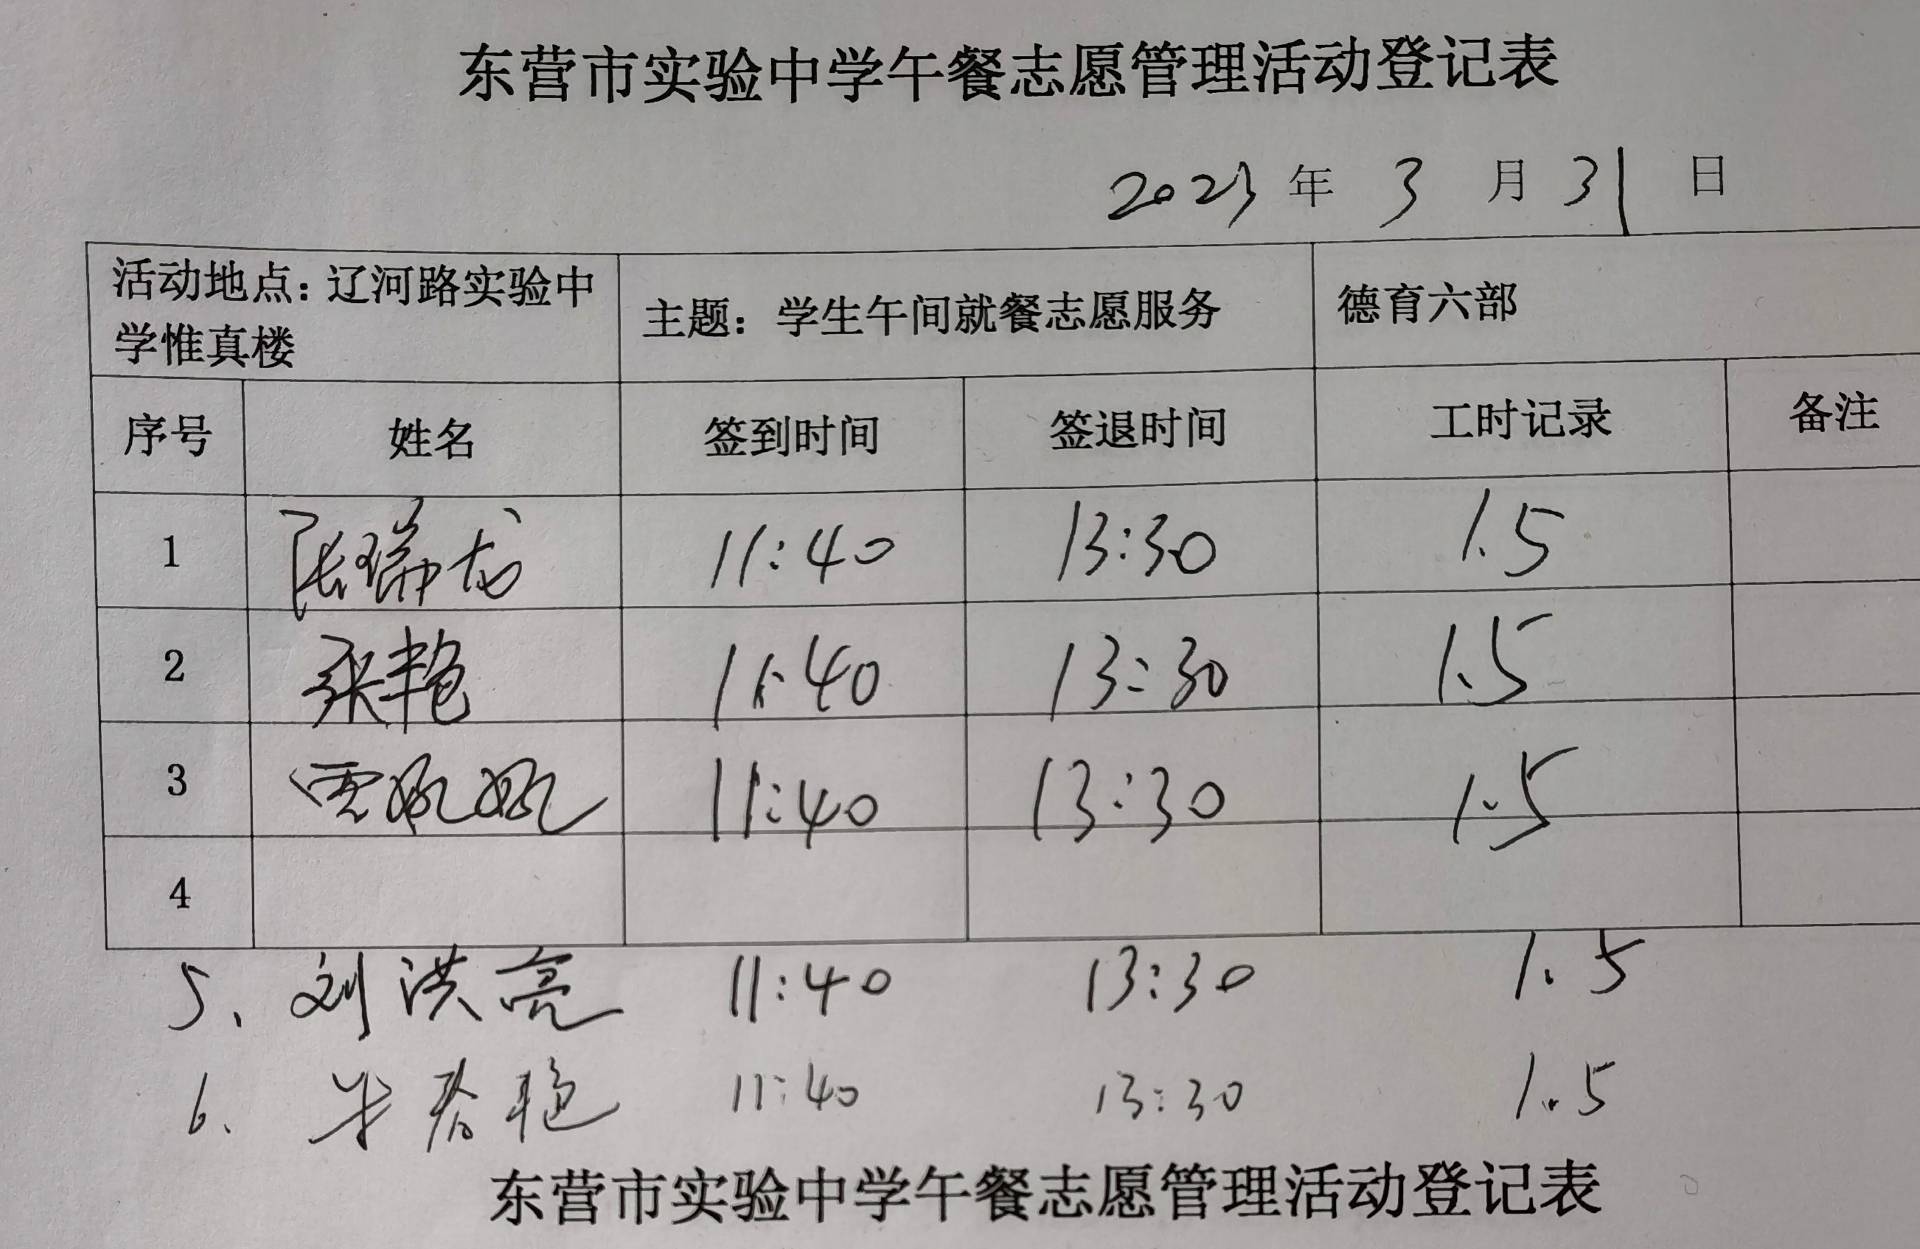 东营市实验中学午餐志愿管理活动登记表
2023 年 3 月 31 日
活动地点：辽河路实验中
学惟真楼
主题：学生午间就餐志愿服务
德育六部
序号 姓名 签到时间 签退时间 工时记录 备注
1 张瑞龙 11:40 13:30 1.5
2 张艳 11:40 13:30 1.5
3 11:40 13:30 1.5
4
5、刘洪亮 11:40 13:30 1.5
6. 牛春艳 11:40 13:30 1.5
东营市实验中学午餐志愿管理活动登记表